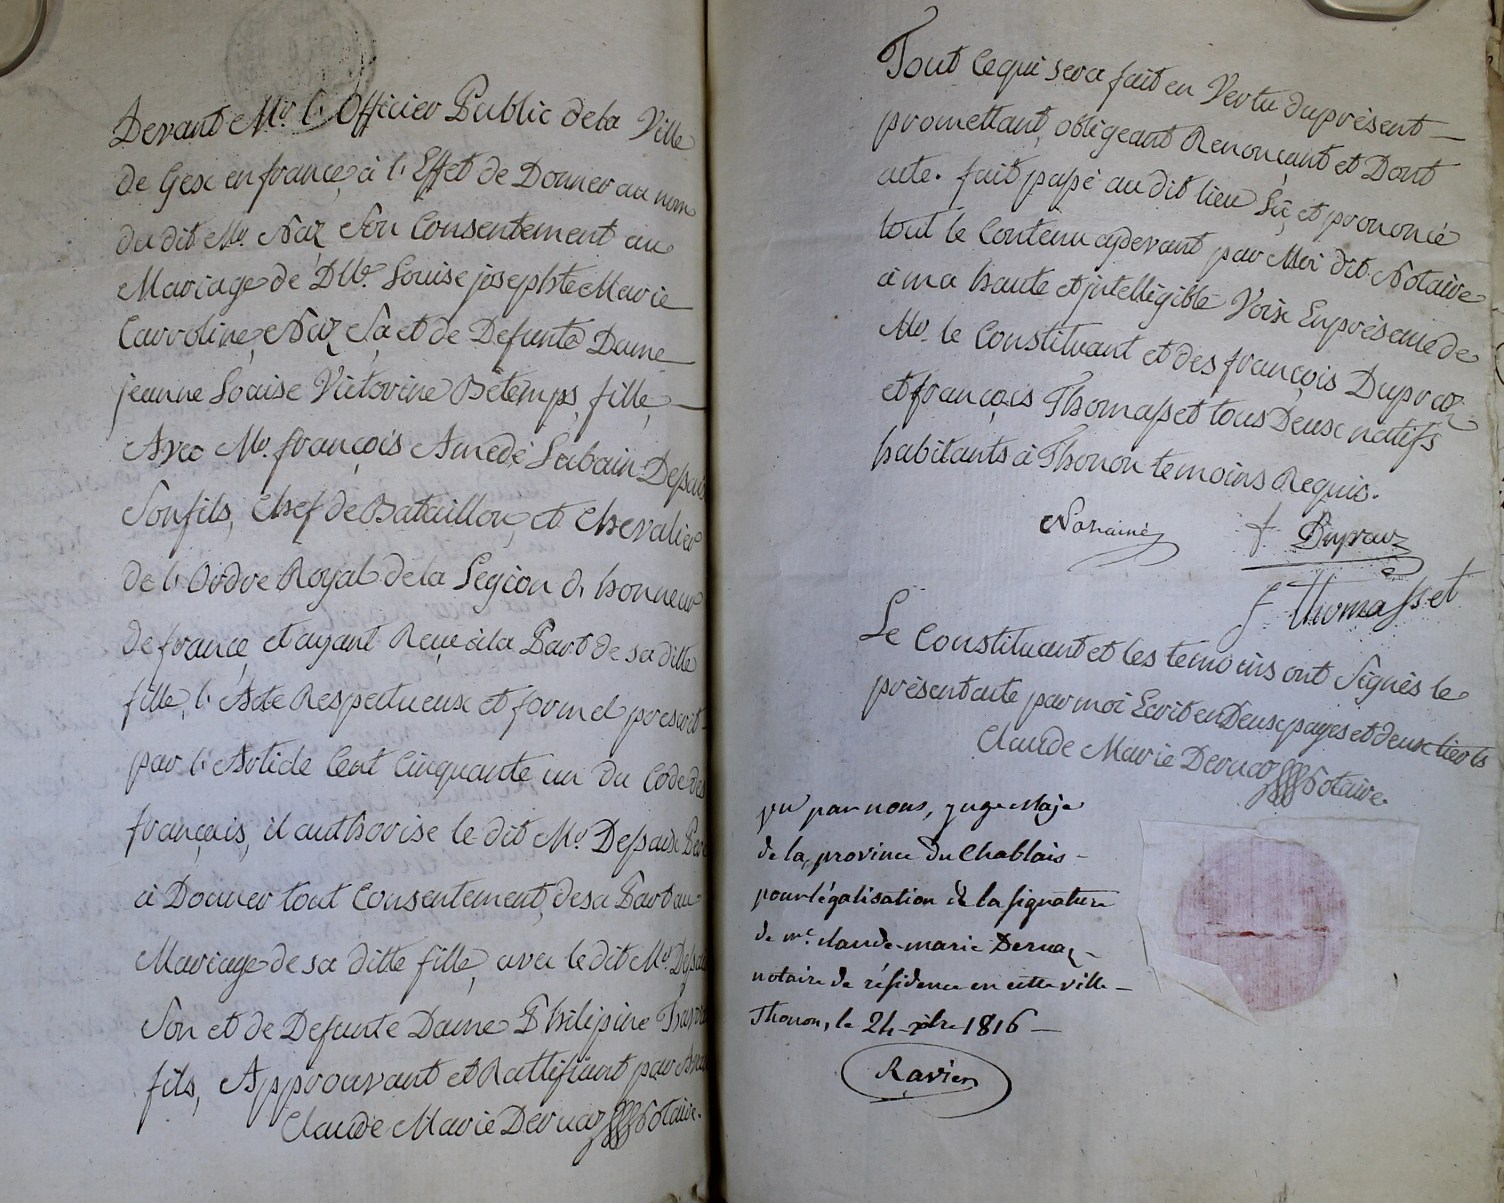 Devant Mr. l'Officier Public de la Ville
de Gex en france, à l'Effet de Donner au nom
du dit Mr. Naz Son Consentement au
Mariage de Dlle. Louise josephte Marie
Carroline, Naz, Sa et de Defunte Dame
jeanne Louise Victorine Bétemps, fille,
Avec Mr. françois Amedé Labain Depaix
Son fils, Chef de Bataillon, et Chevalier
de l'Ordre Royal de la Legion d'honneur
de france, et ayant Reçu à la Part de sa ditte
fille, l'Acte Respectueux et formel prescrit
par l'Article Cent Cinquante un du Code des
français, il authorise le dit Mr. Depaix Pere
à Donner tout Consentement, de sa Part au
Mariage de sa ditte fille, avec le dit Mr. Depaix
Son et de Defunte Dame Philipine
fils, Approuvant et Rattifiant par Avance
Claude Marie Dernaz Notaire.
Tout Ce qui sera fait en Vertu du présent
promettant, obligeant Renonçant et Dont
acte. fait passé au dit lieu Lû, et prononcé
tout le Contenu cydevant par Moi dit Notaire
à ma haute et jntelligible Voix En présence de
Mr. le Constituant et des françois Dupraz
et françois Thomasset tous Deux natifs
habitants à Thonon temoins Requis.
f. Dupraz
f. Thomasset
Le Constituant et les temoins ont Signés le
présent acte par moi Ecrit en Deux pages et deux tierts
Claude Marie Dernaz Notaire.
vu par nous, juge Maje
de la province du Chablais
pour légalisation de la signature
de mr. claude-marie Dernaz
notaire de résidence en cette ville
Thonon, le 24 xbre 1816
Ravier